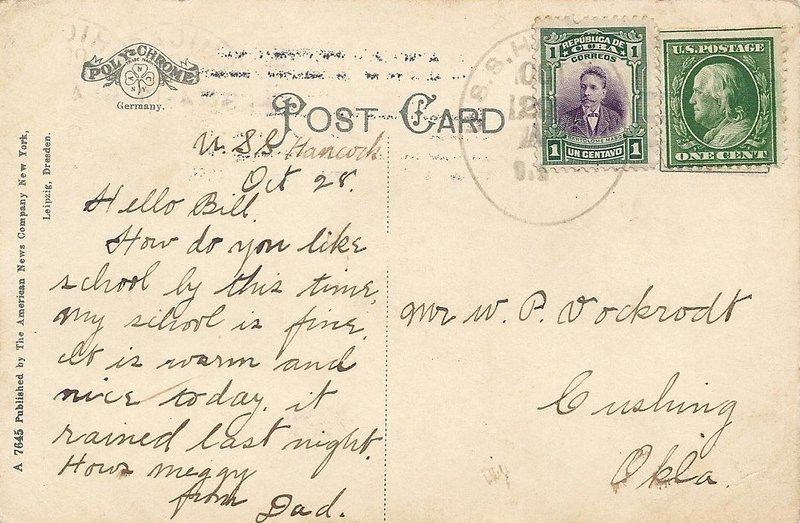 POLY-CHROME
Germany.
POST CARD
REPÚBLICA DE
CUBA
CORREOS
1 1
1 UN CENTAVO 1
U.S. POSTAGE
ONE CENT
A 7645 Published by The American News Company New York,
Leipzig, Dresden.
U.S.S Hancock
Oct 28.
Hello Bill.
How do you like
school by this time,
My school is fine.
it is warm and
nice today, it
rained last night.
Hows meggy
from Dad.
Mr W. P. Vockrodt
Cushing
Okla.